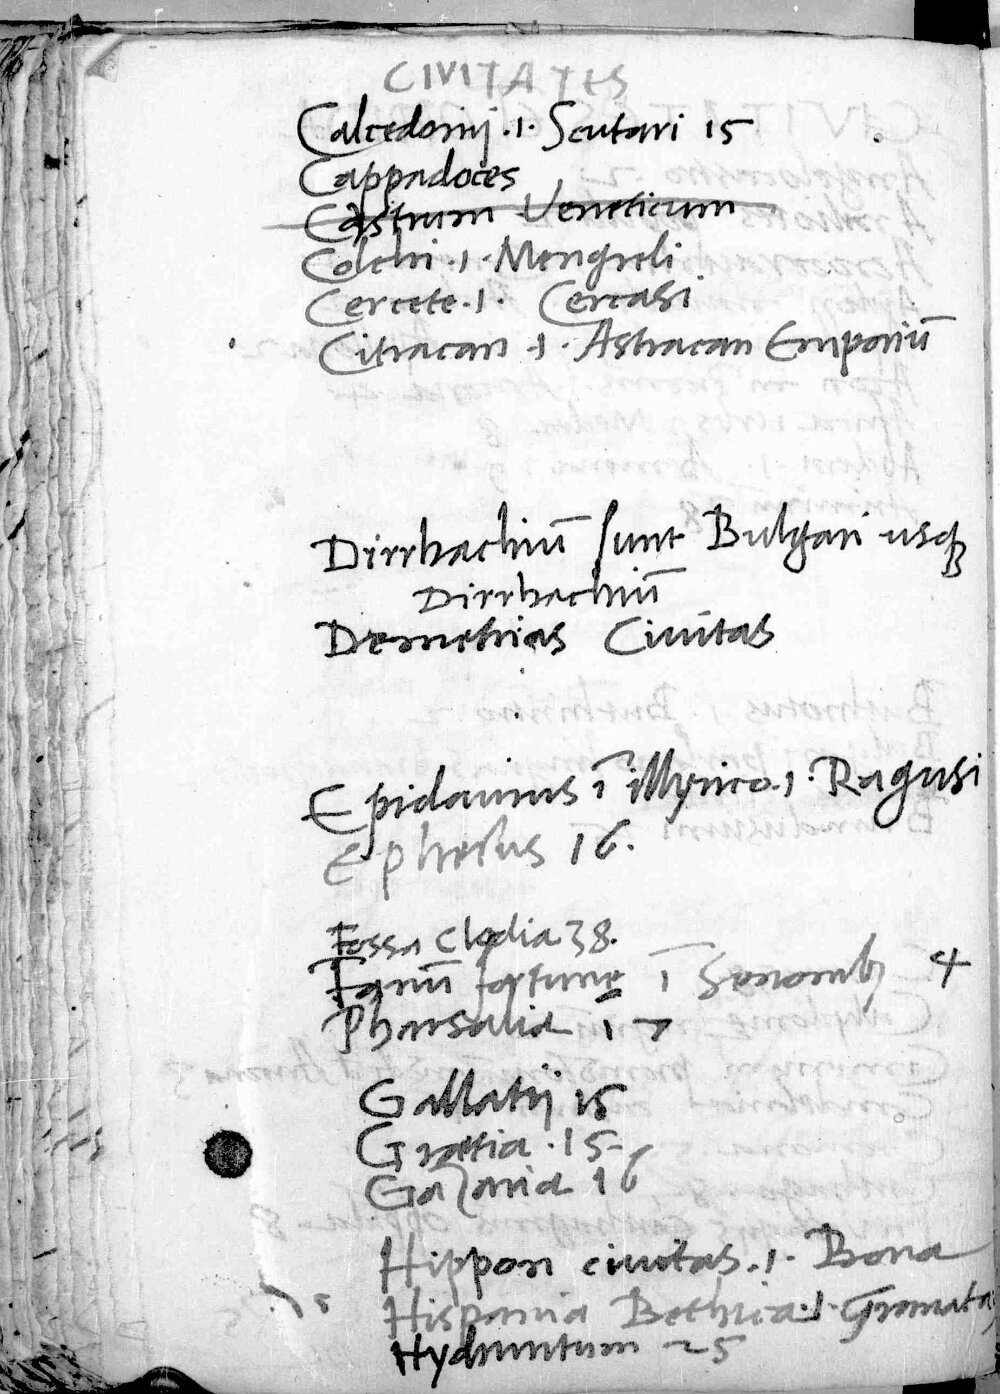 CIVITATES
Calcedonij .1. Scutari 15
Cappadoces
Castrum Veneticum
Colchi .1. Mengreli
Cercete .1. Cercasi
Citracan .1. Astracan Emporiū
Dirrhachiū sunt Bulgari usqꝫ
Dirrhachiū
Demetrias Ciuitas
Epidaurus ī illyrico .1. Ragusi
Ephesus 16.
Fossa Clodia 38.
Fanū fortune ī 4
Pharsalia 17
Gallatij 15
Grætia .15
Gazaria 16
Hippon ciuitas .1. Bona
Hispania Bethica .1. Granata
Hydruntum 25